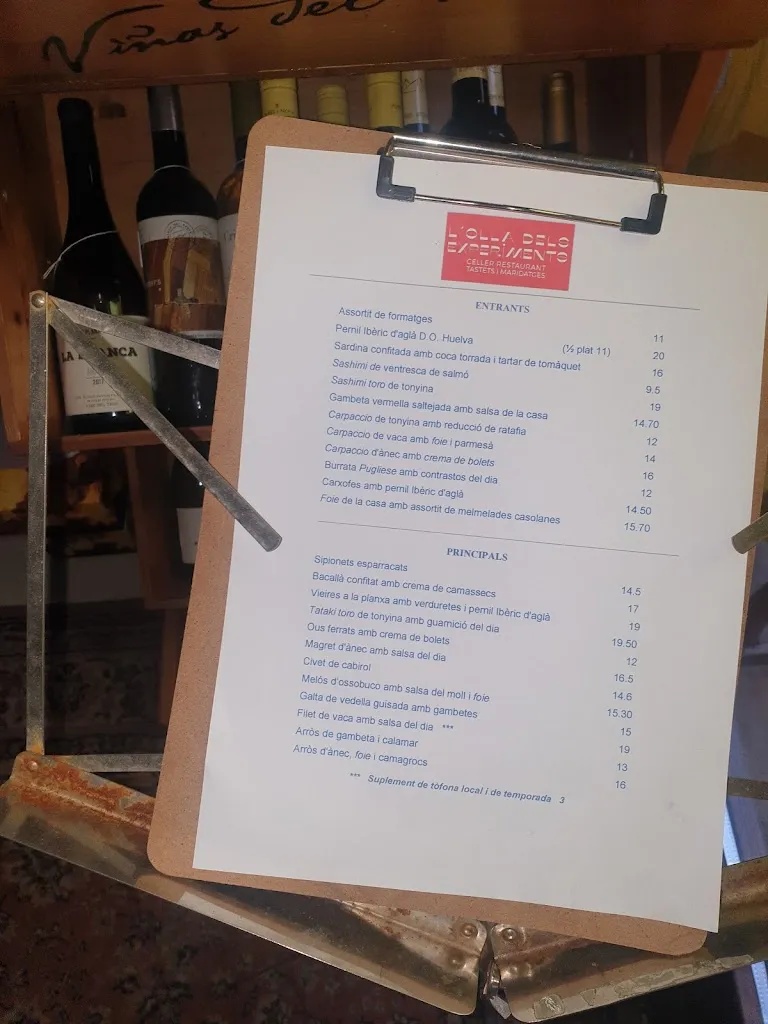 Viñas del
LA BLANCA
L'OLLA DELS
EXPERIMENTO
CELLER RESTAURANT
TASTETS I MARIDATGES
ENTRANTS
Assortit de formatges 11
Pernil Ibèric d'aglà D.O. Huelva (½ plat 11) 20
Sardina confitada amb coca torrada i tartar de tomàquet 16
Sashimi de ventresca de salmó 9.5
Sashimi toro de tonyina 19
Gambeta vermella saltejada amb salsa de la casa 14.70
Carpaccio de tonyina amb reducció de ratafia 12
Carpaccio de vaca amb foie i parmesà 14
Carpaccio d'ànec amb crema de bolets 16
Burrata Pugliese amb contrastos del dia 12
Carxofes amb pernil Ibèric d'aglà 14.50
Foie de la casa amb assortit de melmelades casolanes 15.70
PRINCIPALS
Sipionets esparracats 14.5
Bacallà confitat amb crema de camassecs 17
Vieires a la planxa amb verduretes i pernil Ibèric d'aglà 19
Tataki toro de tonyina amb guarnició del dia 19.50
Ous ferrats amb crema de bolets 12
Magret d'ànec amb salsa del dia 16.5
Civet de cabirol 14.6
Melós d'ossobuco amb salsa del moll i foie 15.30
Galta de vedella guisada amb gambetes 15
Filet de vaca amb salsa del dia *** 19
Arròs de gambeta i calamar 13
Arròs d'ànec, foie i camagrocs 16
*** Suplement de tòfona local i de temporada 3